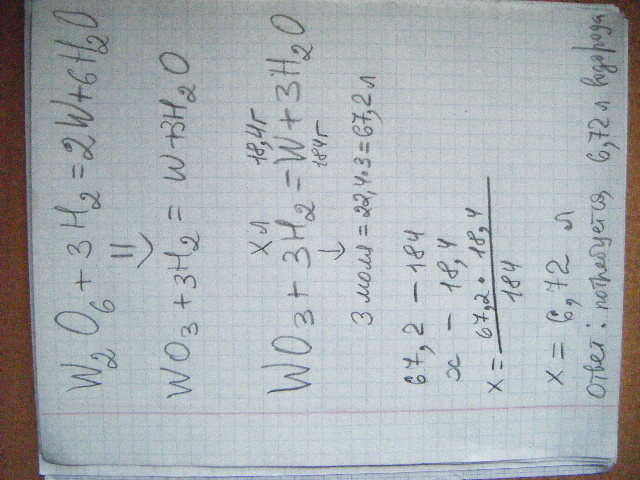 W₂O₆ + 3H₂ = 2W + 6H₂O
||
WO₃ + 3H₂ = W + 3H₂O
x л 18,4г
WO₃ + 3H₂ = W + 3H₂O
184г
↓
3 моля = 22,4·3 = 67,2 л
67,2 – 184
x – 18,4
x = 67,2 · 18,4 / 184
x = 6,72 л
Ответ: потребуется 6,72 л водорода